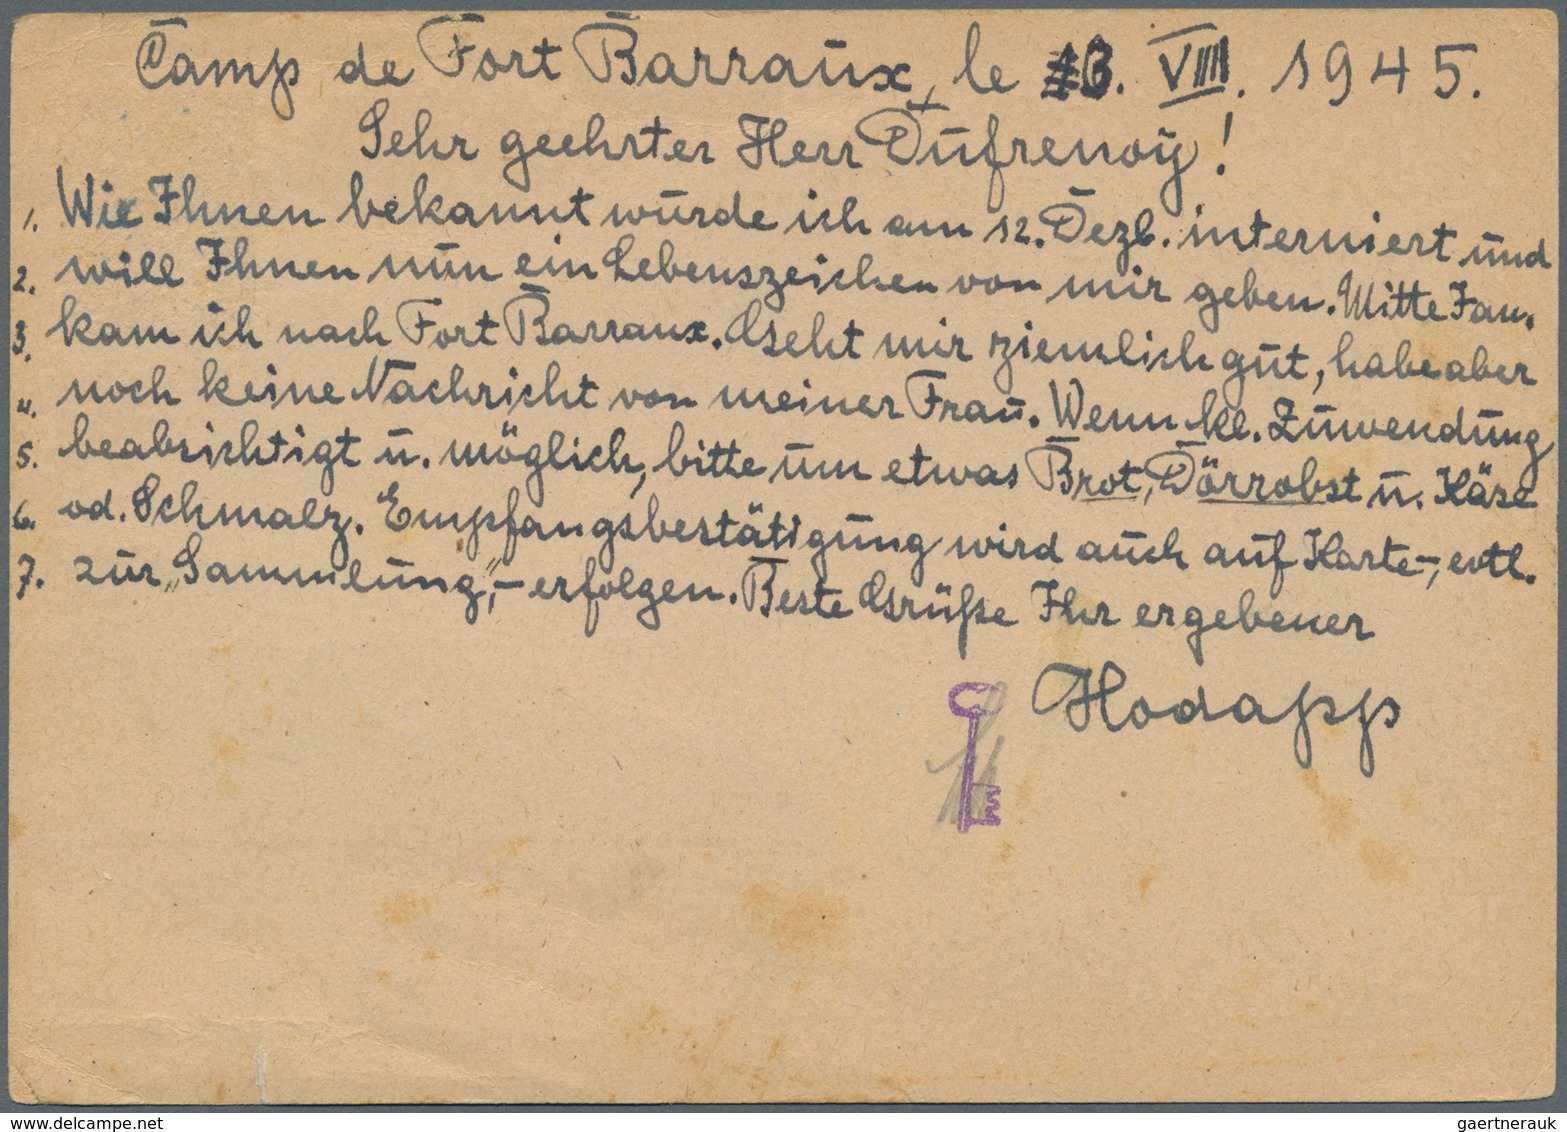 Camp de Fort Barraux, le 13. VIII. 1945.
Sehr geehrter Herr Dufrenoy!
1. Wie Ihnen bekannt wurde ich am 12. Dezb. interniert und
2. will Ihnen nun ein Lebenszeichen von mir geben. Mitte Jan.
3. kam ich nach Fort Barraux. Geht mir ziemlich gut, habe aber
4. noch keine Nachricht von meiner Frau. Wenn kl. Zuwendung
5. beabsichtigt u. möglich, bitte um etwas Brot, Dörrobst u. Käse
6. od. Schmalz. Empfangsbestätigung wird auch auf Karte-, evtl.
7. zur „Sammlung",- erfolgen. Beste Grüße Ihr ergebener
Hodapp
www.delcampe.net
gaertnerauk